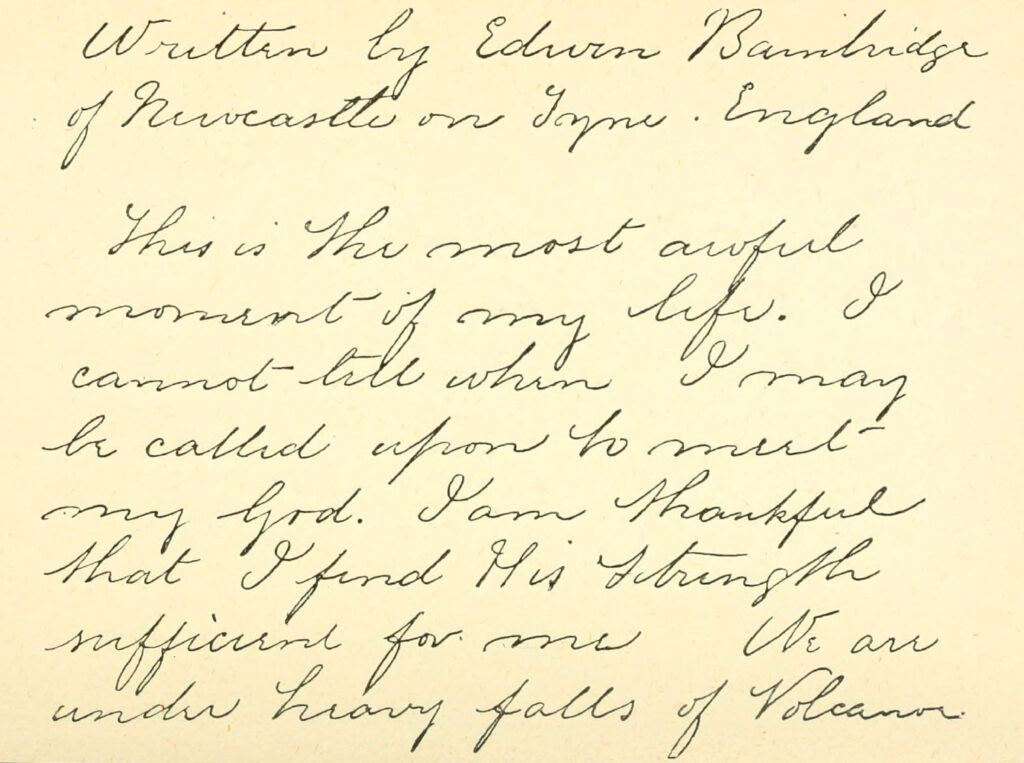 Written by Edwin Bainbridge
of Newcastle on Tyne. England
This is the most awful
moment of my life. I
cannot tell when I may
be called upon to meet
my God. I am thankful
that I find His Strength
sufficient for me We are
under heavy falls of Volcanoe.